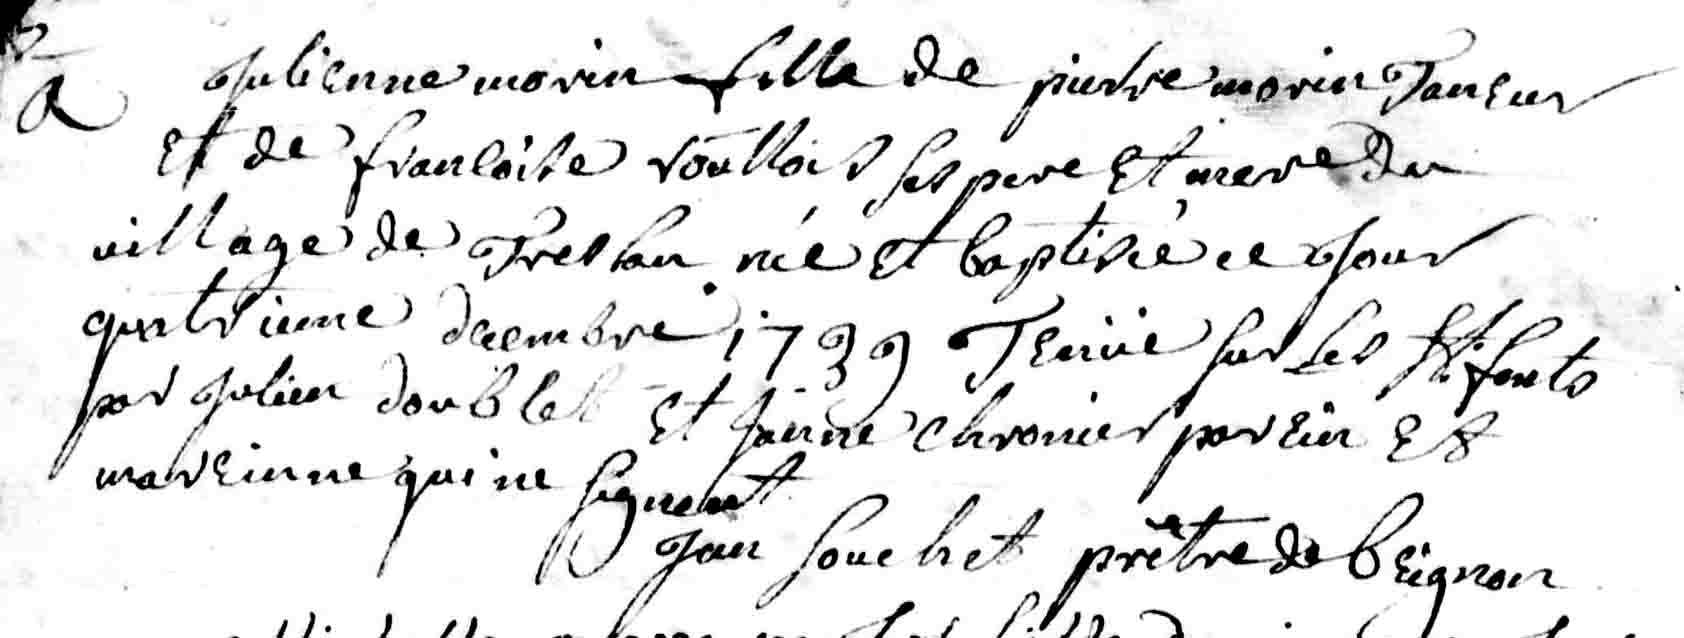 Julienne morin fille de pierre morin Taneur
Et de francoise roullois ses pere Et mere du
village de Treslan née Et baptisée ce Jour
quatrieme decembre 1739 Tenüe sur les Sts fonts
par Julien doublet Et Janne chronier parein Et
mareinne qui ne signent
Jan Souchet prêtre de beignon